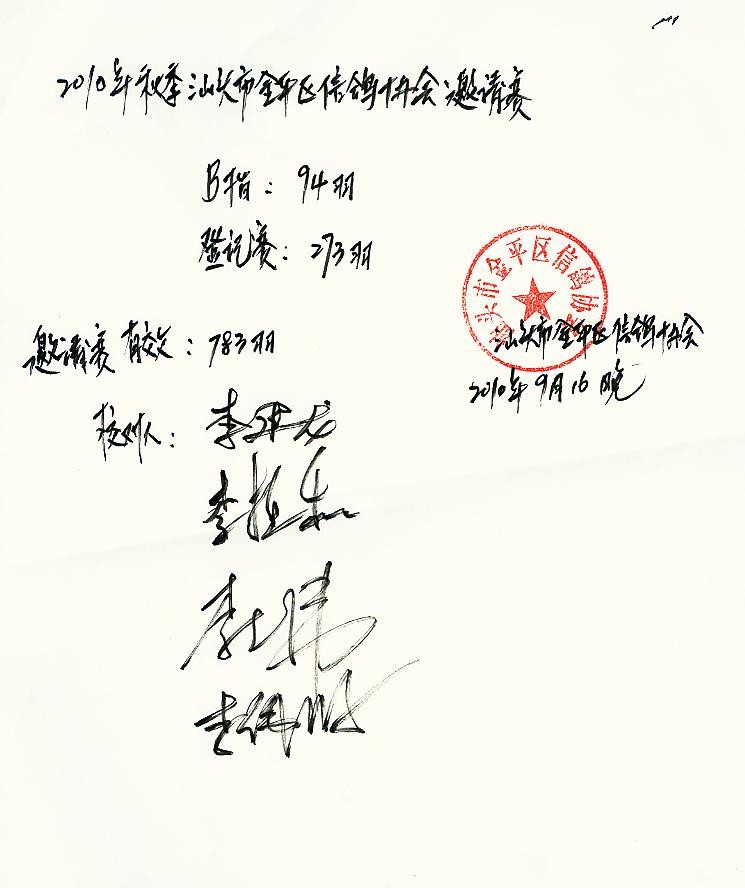 2010年秋季汕头市金平区信鸽协会邀请赛
B指：94羽
登记赛：273羽
汕头市金平区信鸽协会
邀请赛有效：783羽
汕头市金平区信鸽协会
2010年9月16晚
校对人：李
李
李